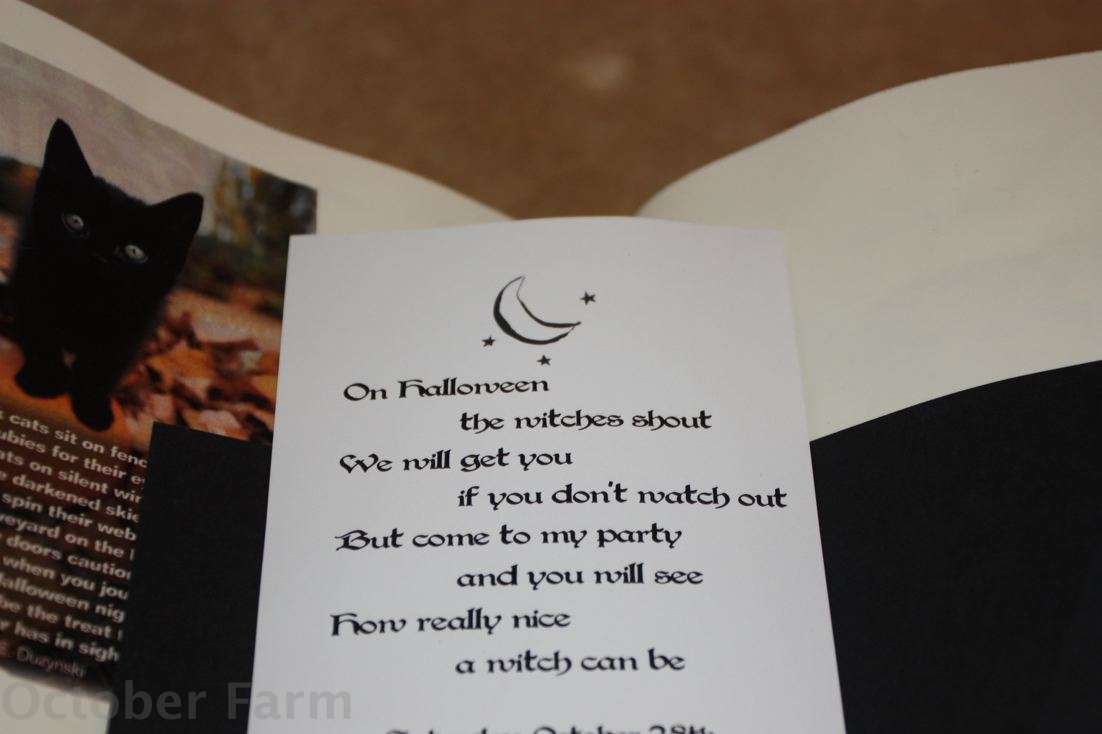 On Halloween
the witches shout
We will get you
if you don't watch out
But come to my party
and you will see
How really nice
a witch can be
October 28th
cats sit on
for their
on silent
darkened
spin their
on the
doors
when you
be the treat
has in
Duzynski
October Farm